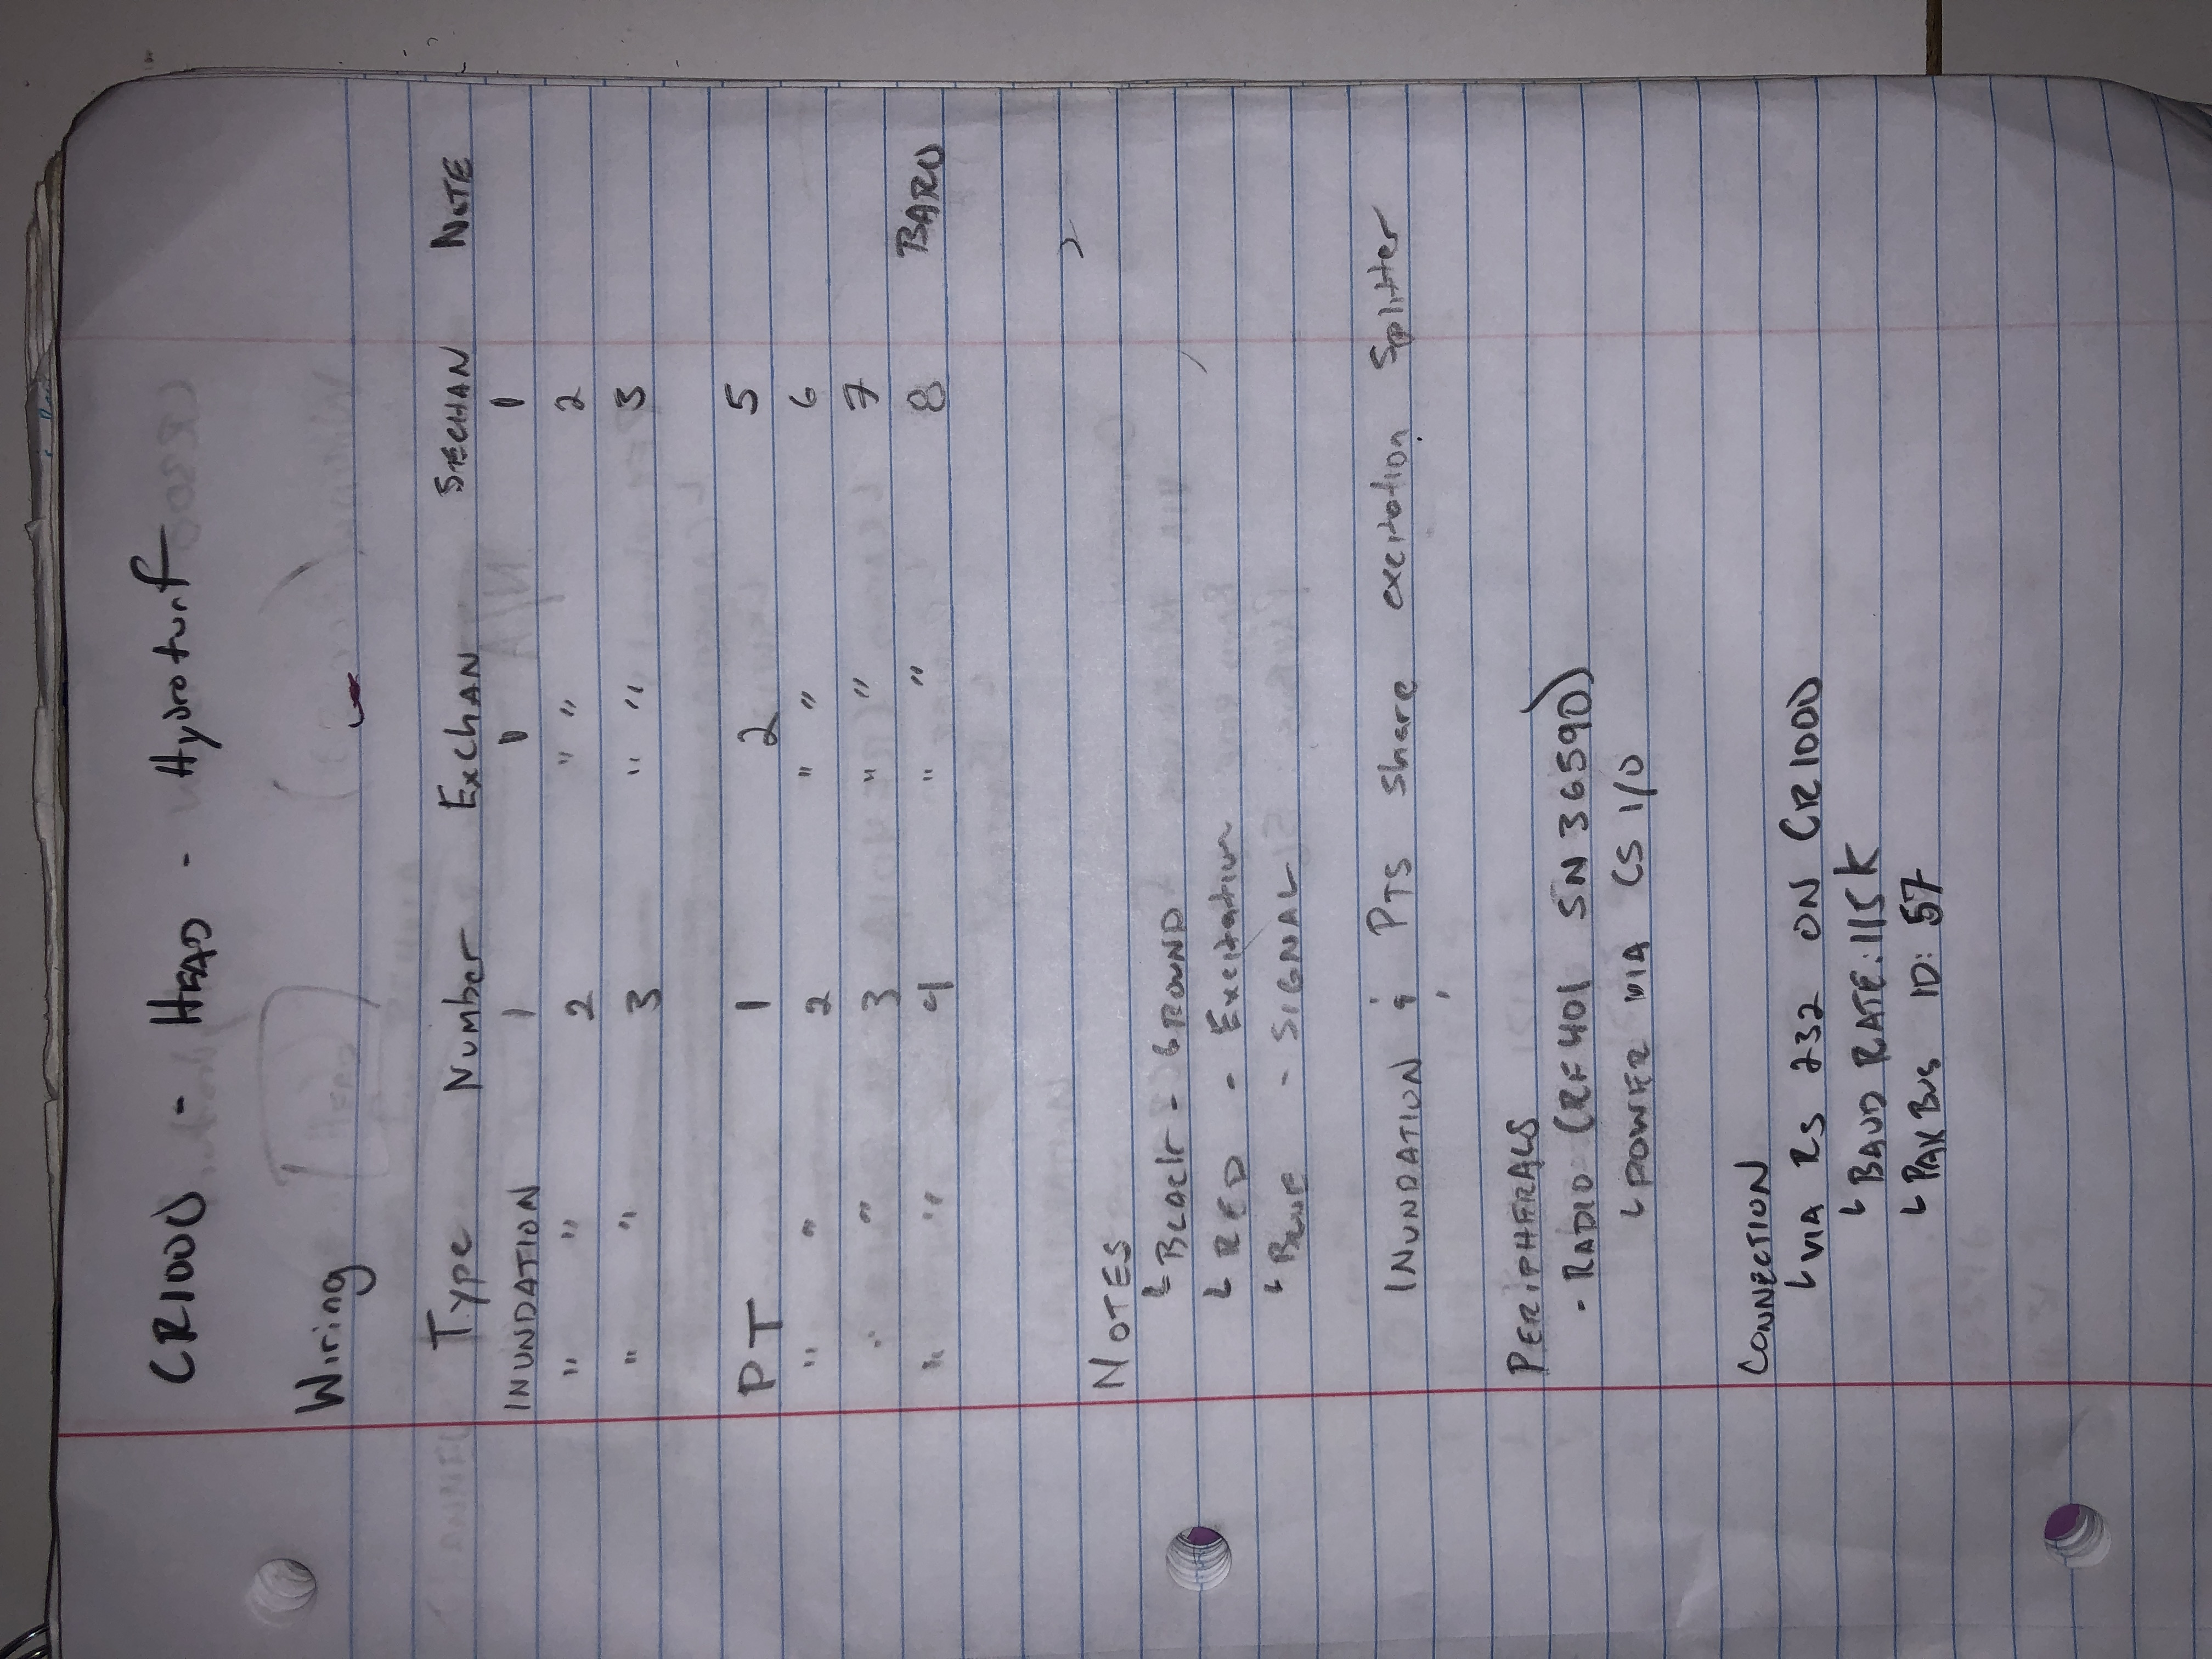 CR1000 - HEAD - Hydroturf
Wiring
Type Number ExChAN SECHAN NOTE
INUNDATION 1 1 1
" " 2 " " 2
" " 3 " " 3
PT 1 2 5
" " 2 " " 6
" " 3 " " 7
" " 4 " " 8 BARO
NOTES
└ BLACK - GROUND
└ RED - Excitation
└ BLUE - SIGNAL
INUNDATION & PTS share excitation Splitter
PERIPHERALS
- RADIO (RF401 SN 36590)
└ POWER VIA CS I/O
CONNECTION
└ VIA RS 232 ON CR1000
└ BAUD RATE: 115K
└ PAKBUS ID: 57